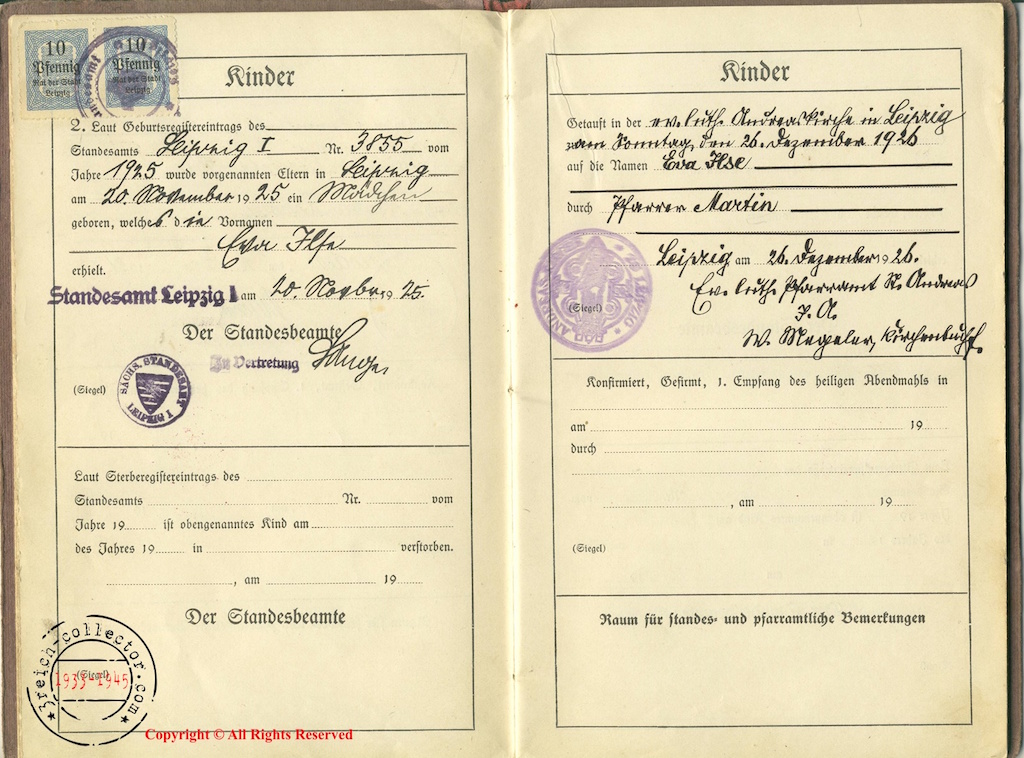 10
Pfennig
Rat der Stadt
Leipzig
10
Pfennig
Rat der Stadt
Leipzig
Kinder
2. Laut Geburtsregistereintrags des
Standesamts Leipzig I Nr. 3855 vom
Jahre 1925 wurde vorgenannten Eltern in Leipzig
am 20. November 1925 ein Mädchen
geboren, welches die Vornamen
Eva Ilse
erhielt.
Standesamt Leipzig I am 20. Novbr. 1925.
Der Standesbeamte
In Vertretung
(Siegel)
SÄCHS. STANDESAMT
LEIPZIG I
Laut Sterberegistereintrags des
Standesamts Nr. vom
Jahre 19 ist obengenanntes Kind am
des Jahres 19 in verstorben.
, am 19
Der Standesbeamte
(Siegel)
3reich-collector.com
1933-1945
Copyright © All Rights Reserved
Kinder
Getauft in der ev. luth. Andreaskirche in Leipzig
am Sonntag, den 26. Dezember 1926
auf die Namen Eva Ilse
durch Pfarrer Martin
Leipzig am 26. Dezember 1926.
Ev. luth. Pfarramt St. Andreas
(Siegel)
I. A.
W. Kirchenbuchf.
Konfirmiert, Gefirmt, 1. Empfang des heiligen Abendmahls in
am 19
durch
, am 19
(Siegel)
Raum für standes- und pfarramtliche Bemerkungen